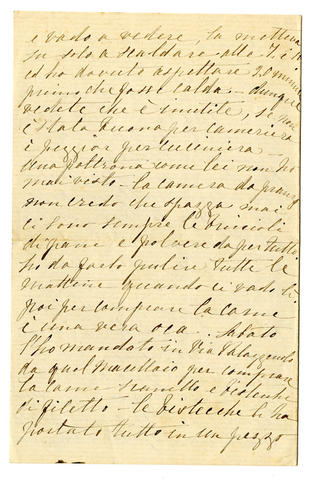 e vado a vedere, la mattina
su solo a scaldare alle 7. e
ed ho dovuto aspettare 20 minuti
prima che fosse calda - dunque
vedete che è inutile, se non
è stata buona per cameriera
è peggior per cuciniera -
una poltrona come lei non ho
mai visto - la camera da pranzo
non credo che spazza mai
ci sono sempre le bricioli
di pane e polvere da per tutto
ho da farlo pulire tutte le
mattine quando ci vado li.
Poi per comprare la carne
è una vera oca.. Sabato
l'ho mandato in Via
da quel macellaio per comprare
la carne e bistecche
di filetto - le bistecche li ha
portato tutto in un pezzo